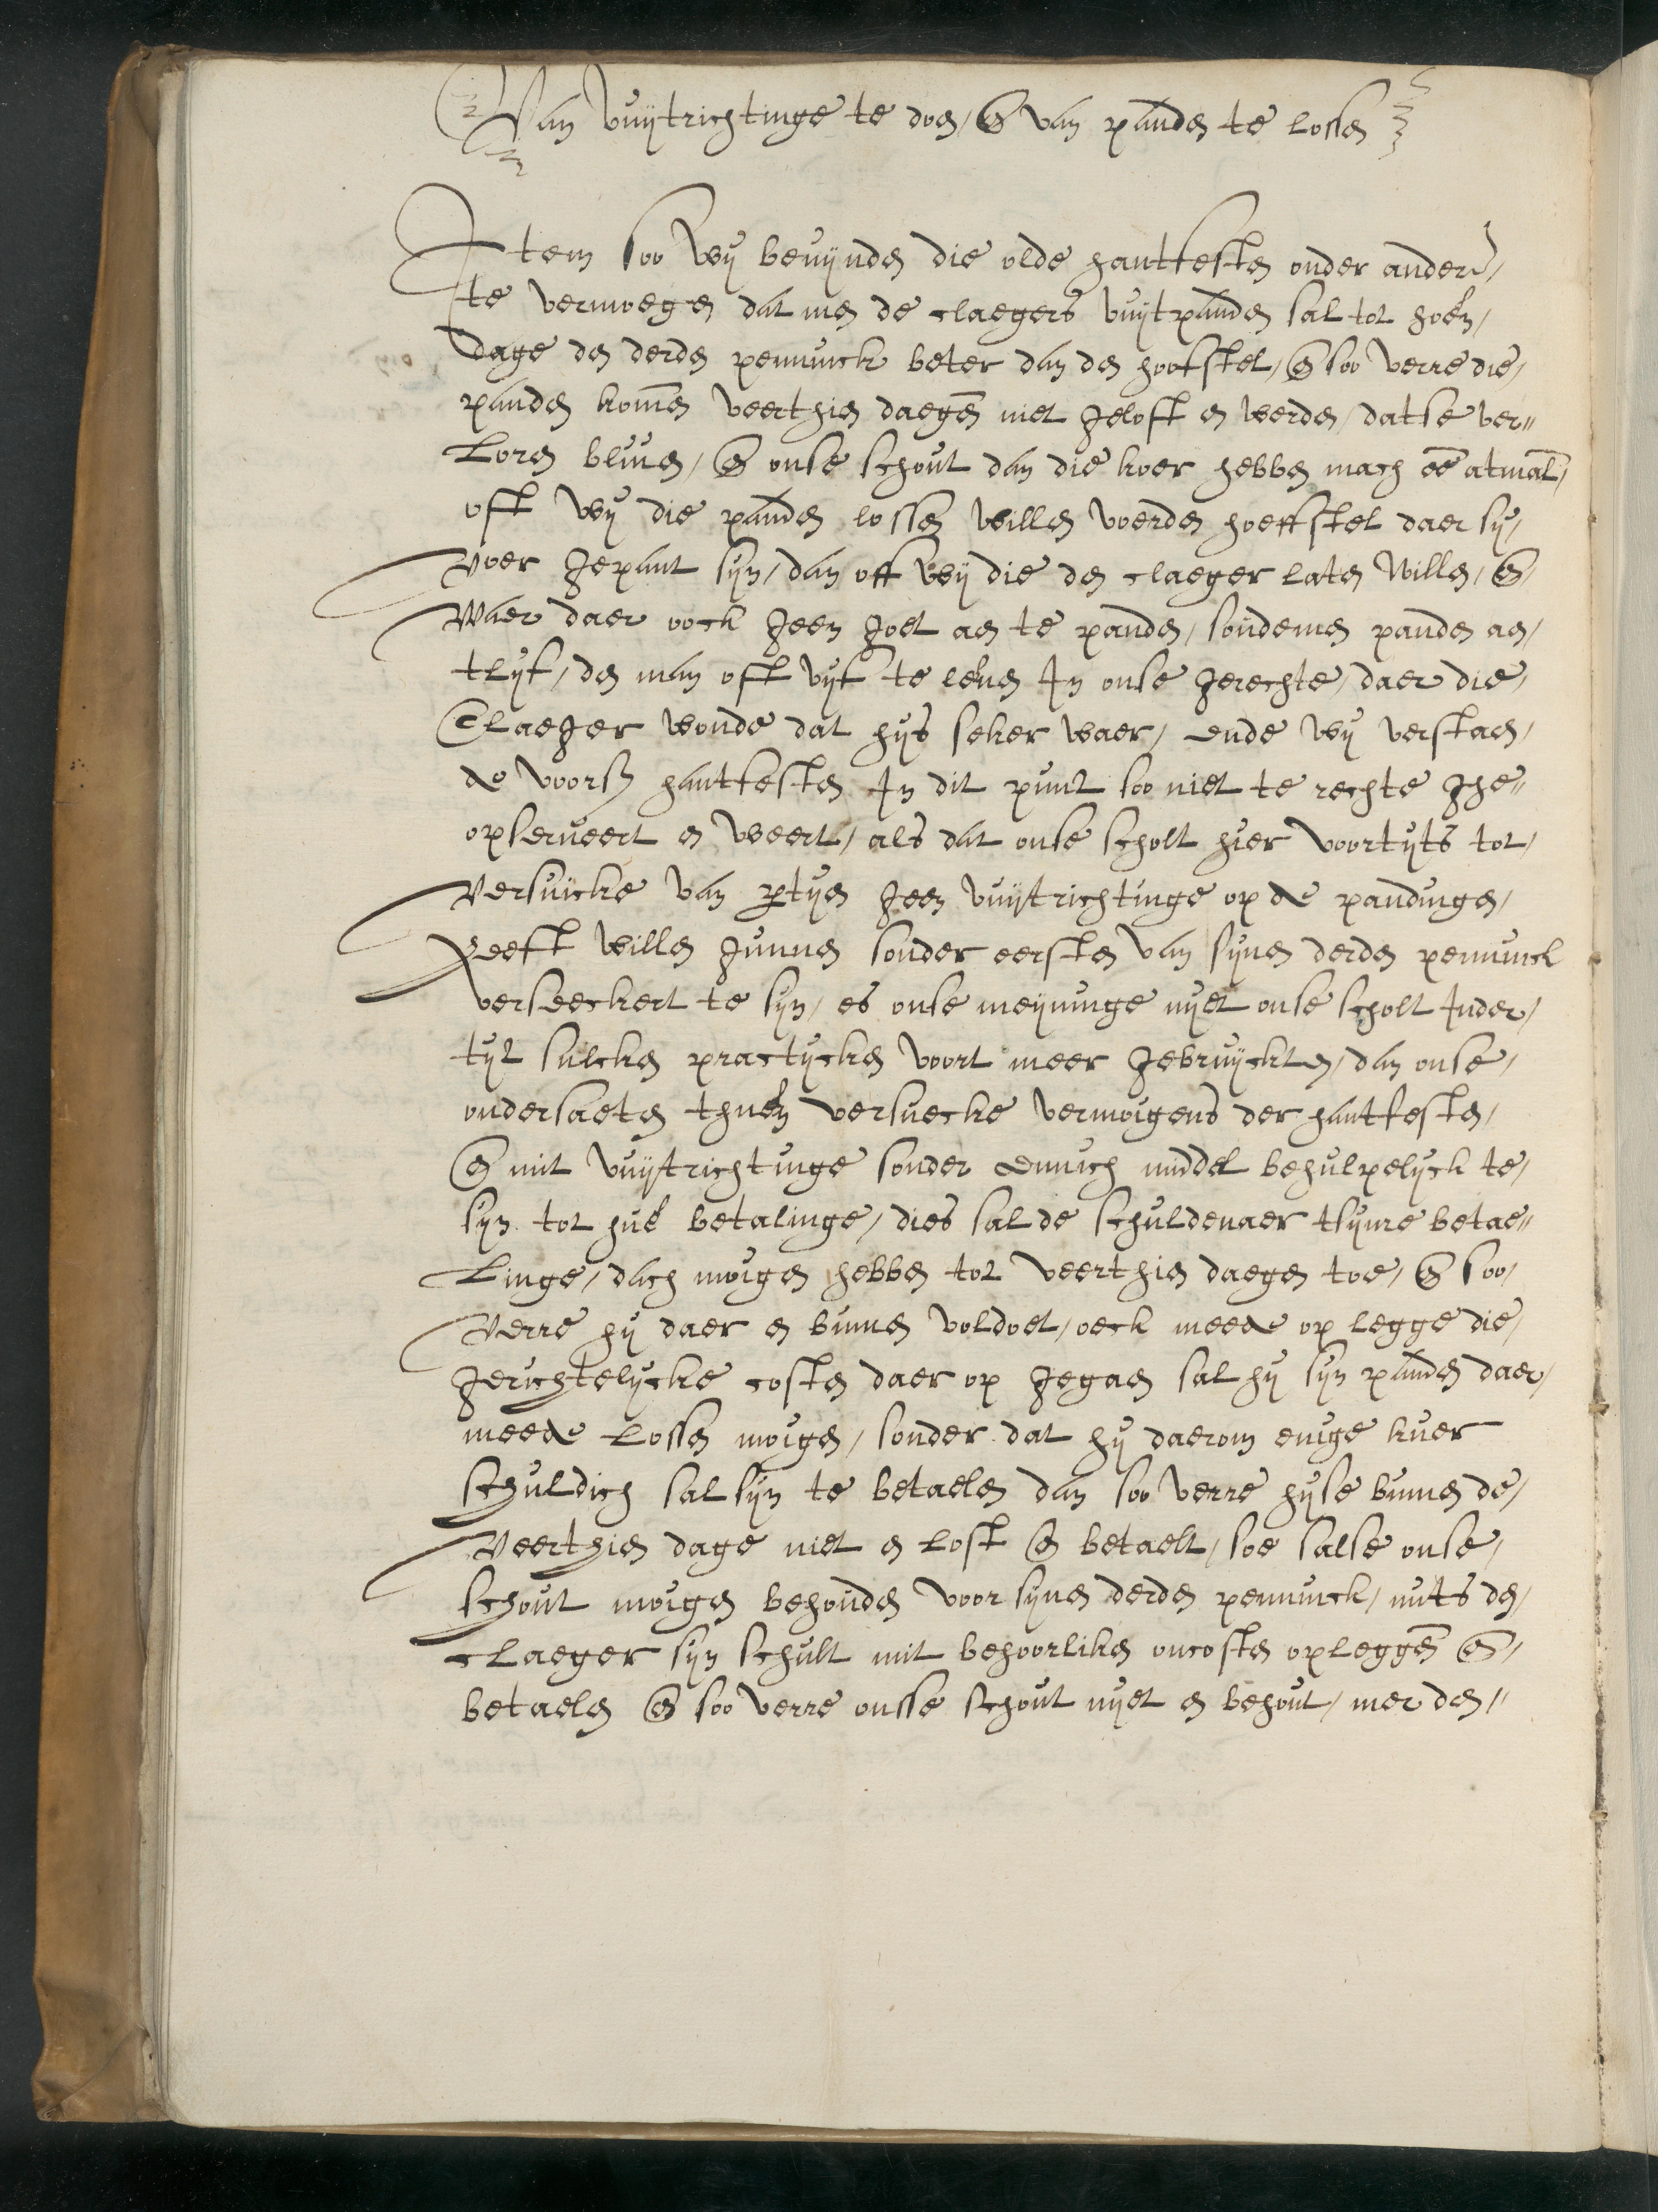 Van vuijtrichtinge te doen, en van panden te lossen
Item soo wij bevijnden die olde hantfesten onder ander,
te vermoegen dat men de claegers vuijtpanden sal tot hoen,
dage den derden pennick beter dan den hooftstel, en soo verre die,
panden komen veerthien daegen niet geloft en werden, datse ver=
loren bliven, en onse schout dan die koer hebben mach een atmal,
oft wij die panden lossen willen voerden hoeffstel daer sij,
voer gepant sijn, dan off wij die den claeger laten willen, en,
waer daer oock geen goet aen te panden, soudemen panden aen,
tlijf, den man oft vijf te leven In onse gerechte, daer die,
Claeger wonde dat hijs seker waer, ende wij verstaen,
de voorsz hantfesten In dit punt soo niet te rechte ghe=
opserveert en weert, als dat onse scholt hier voortijts tot,
versuicke van partijen geen vuijtrichtinge op de pandingen,
heeft willen gunnen sonder eersten van sijnen derden pennick
verseeckert te sijn, es onse meijninge nijet onse scholt Inder,
tijt sulcken practijcken voort meer gebruijckten, dan onse,
ondersaeten thueren versuecke vermoigens der hantfesten,
en mit vuijtrichtinge sonder ennich middel behulpelijck te,
sijn tot huer betalinge, dies sal de schuldenaer tsijnre betae=
linge, dach moigen hebben tot veerthien daegen toe, en soo,
verre hij daer en binnen voldoet, oeck meede op legge die,
gerichtelijcke costen daer op gegaen sal hij sijn panden daer,
meede lossen moigen, sonder dat hij daerom enige kuer
schuldich sal sijn te betaelen dan soo verre hijse binnen de,
veerthien dage niet en lost en betaelt, soe salse onse,
schout moigen behouden voor sijnen derden pennick, mits den,
claeger sijn schult mit behoorliken oncosten opleggen en,
betaelen en soo verre onsse schout nijet en behout, mer den=